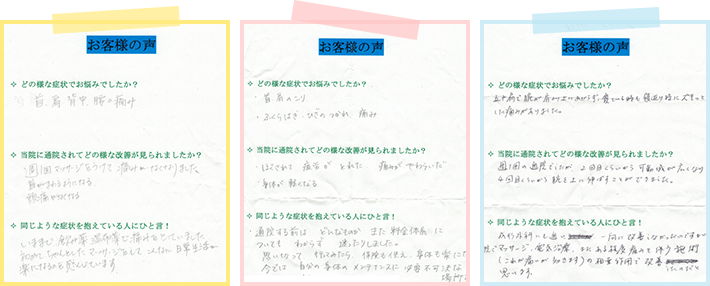 お客様の声
✧ どの様な症状でお悩みでしたか？
首、肩、背中、腰の痛み
✧ 当院に通院されてどの様な改善が見られましたか？
週1回マッサージをうけて痛みがなくなりました。
首がまわるようになる
腰痛がなくなる
✧ 同じような症状を抱えている人にひと言！
いままで 飲み薬 湿布薬で痛みをとっていました
初めて ちゃんとしたマッサージをして こんなに日常生活が
楽になるのを感じています
お客様の声
✧ どの様な症状でお悩みでしたか？
・首、肩のこり
・ふくらはぎ・ひざのつかれ、痛み
✧ 当院に通院されてどの様な改善が見られましたか？
・ほぐされて 疲労が とれた 痛みが やわらいだ
・身体が軽くなる
✧ 同じような症状を抱えている人にひと言！
・通院する前は どんなものか また 料金体系に
ついても わからず 迷ったりしました。
思い切って 行ってみたら、保険も使え、身体も楽に
今では 自分の身体のメンテナンスに 必要不可欠な
場所
お客様の声
✧ どの様な症状でお悩みでしたか？
五十肩で腕が肩より上に上がらず、寝ている時も寝返り時に
した痛みがありました。
✧ 当院に通院されてどの様な改善が見られましたか？
週1回の通院でしたが、2回目くらいから 可動域が広くなり
4回目くらいから 腕を上に伸ばすことができました。
✧ 同じような症状を抱えている人にひと言！
整形外科にも通
マッサージ、電気治療、
の相乗作用で改善
思います。